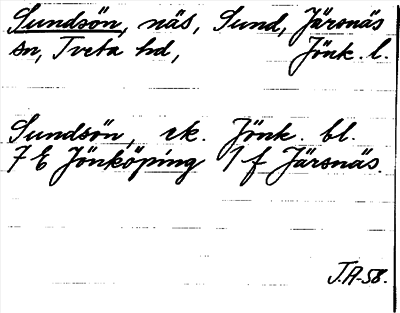 Sundsön, näs, Sund, Järsnäs
sn, Tveta hd, Jönk. l.
Sundsön, ek. Jönk. bl.
7 E Jönköping 1 f Järsnäs.
J.A-58.